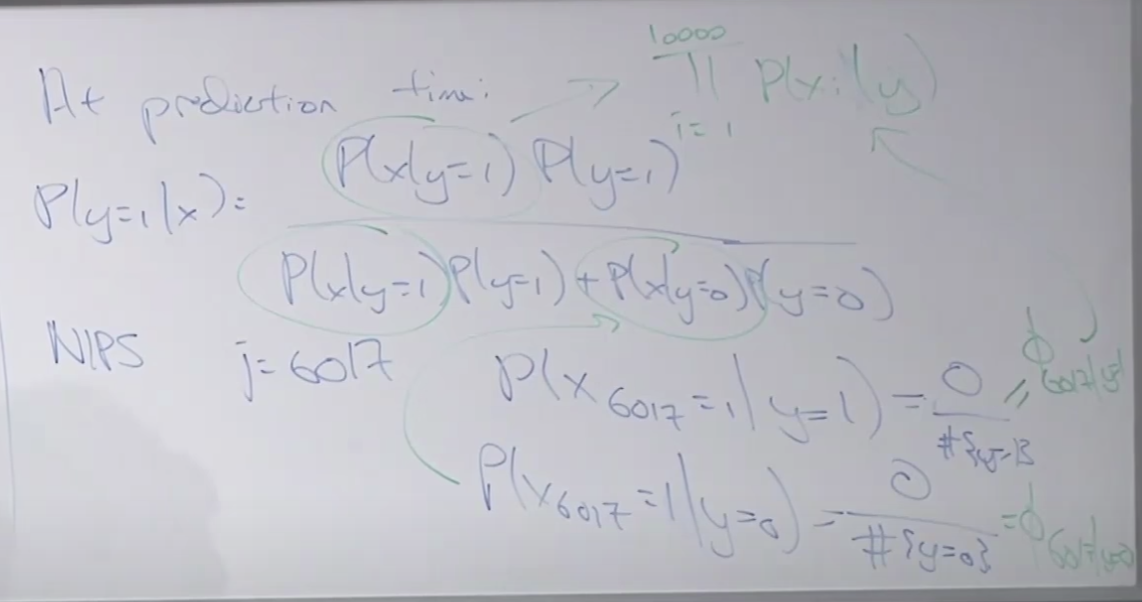 At prediction time:
10000
∏ P(xᵢ|y)
i=1
P(y=1|x)=
P(x|y=1) P(y=1)
P(x|y=1)P(y=1) + P(x|y=0)P(y=0)
NIPS j=6017
P(x₆₀₁₇=1|y=1) = 0 / #{y=1} = ϕ₆₀₁₇|y=1
P(x₆₀₁₇=1|y=0) = 0 / #{y=0} = ϕ₆₀₁₇|y=0